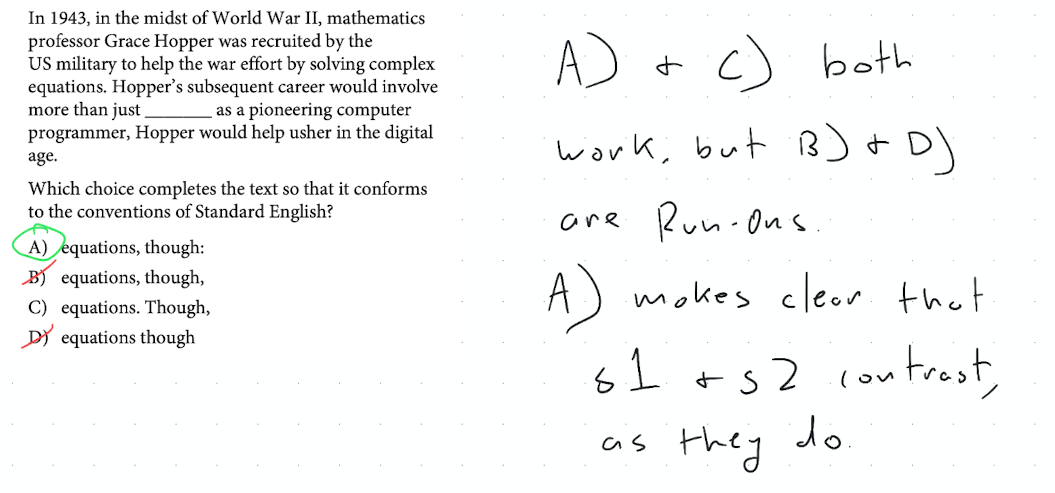 In 1943, in the midst of World War II, mathematics
professor Grace Hopper was recruited by the
US military to help the war effort by solving complex
equations. Hopper's subsequent career would involve
more than just ______ as a pioneering computer
programmer, Hopper would help usher in the digital
age.
Which choice completes the text so that it conforms
to the conventions of Standard English?
A) equations, though:
B) equations, though,
C) equations. Though,
D) equations though
A) + C) both
work, but B) + D)
are Run-Ons.
A) makes clear that
s1 + s2 contrast,
as they do.